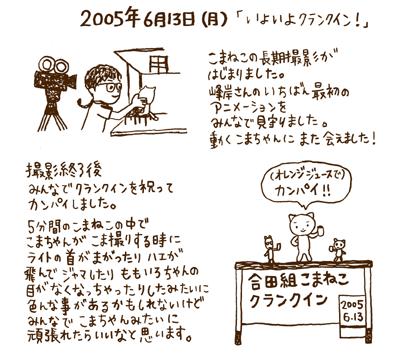 2005年6月13日(月)「いよいよクランクイン!」
こまねこの長期撮影が
はじまりました。
峰岸さんのいちばん最初の
アニメーションを
みんなで見守りました。
動くこまちゃんにまた会えました!
撮影終了後
みんなでクランクインを祝って
カンパイしました。
5分間のこまねこの中で
こまちゃんがこま撮りする時に
ライトの首がまがったりハエが
飛んでジャマしたりももいろちゃんの
目がなくなっちゃったりしたみたいに
色んな事があるかもしれないけど
みんなでこまちゃんみたいに
頑張れたらいいなと思います。
(オレンジジュースで)
カンパイ!!
合田組こまねこ
クランクイン
2005
6.13